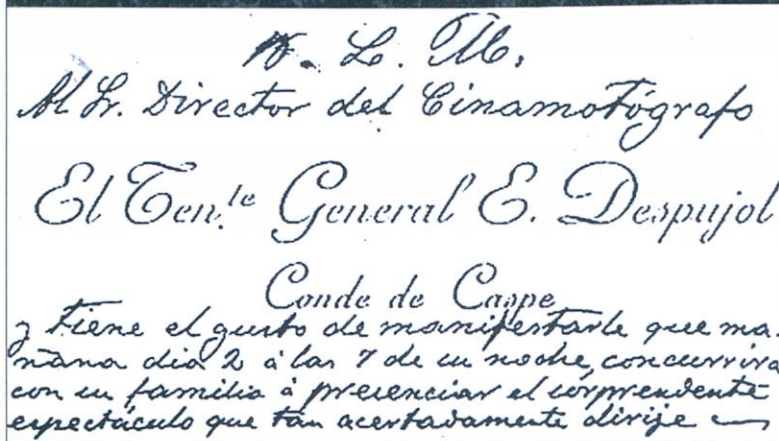 B. L. M.
Al Sr. Director del Cinamotógrafo
El Ten.te General E. Despujol
Conde de Caspe
y tiene el gusto de manifestarle que ma-
ñana dia 2 á las 7 de su noche, concurrirá
con su familia á presenciar el sorprendente
espectáculo que tan acertadamente dirije